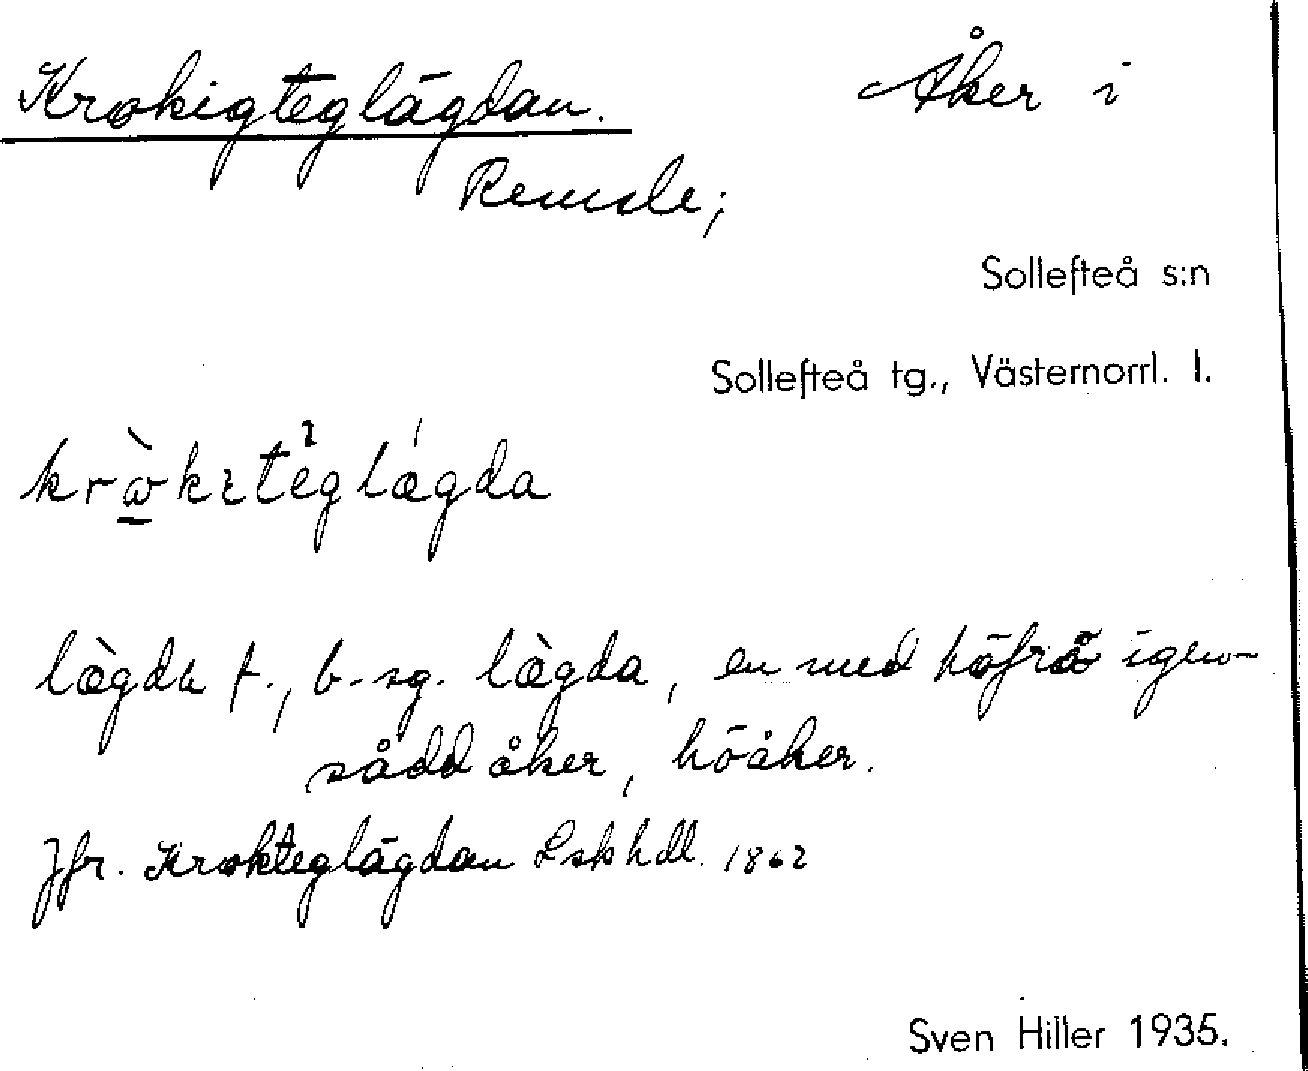 Krokigteglägdan. Åker i
Remsle;
Sollefteå s:n
Sollefteå tg., Västernorrl. l.
lægda f., b. sg. lægda, en med höfrö igen-
sådd åker, höåker.
Jfr. Krokteglägdan Lskhdl. 1862
Sven Hiller 1935.